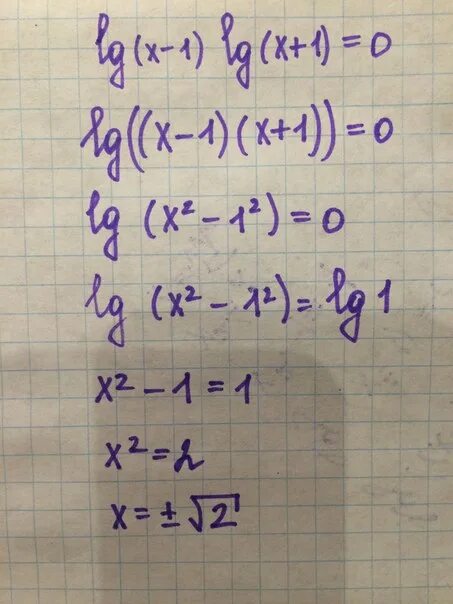 lg(x-1) lg(x+1)=0
lg((x-1)(x+1))=0
lg (x²-1²)=0
lg (x²-1²)=lg1
x²-1=1
x²=2
x=±√2